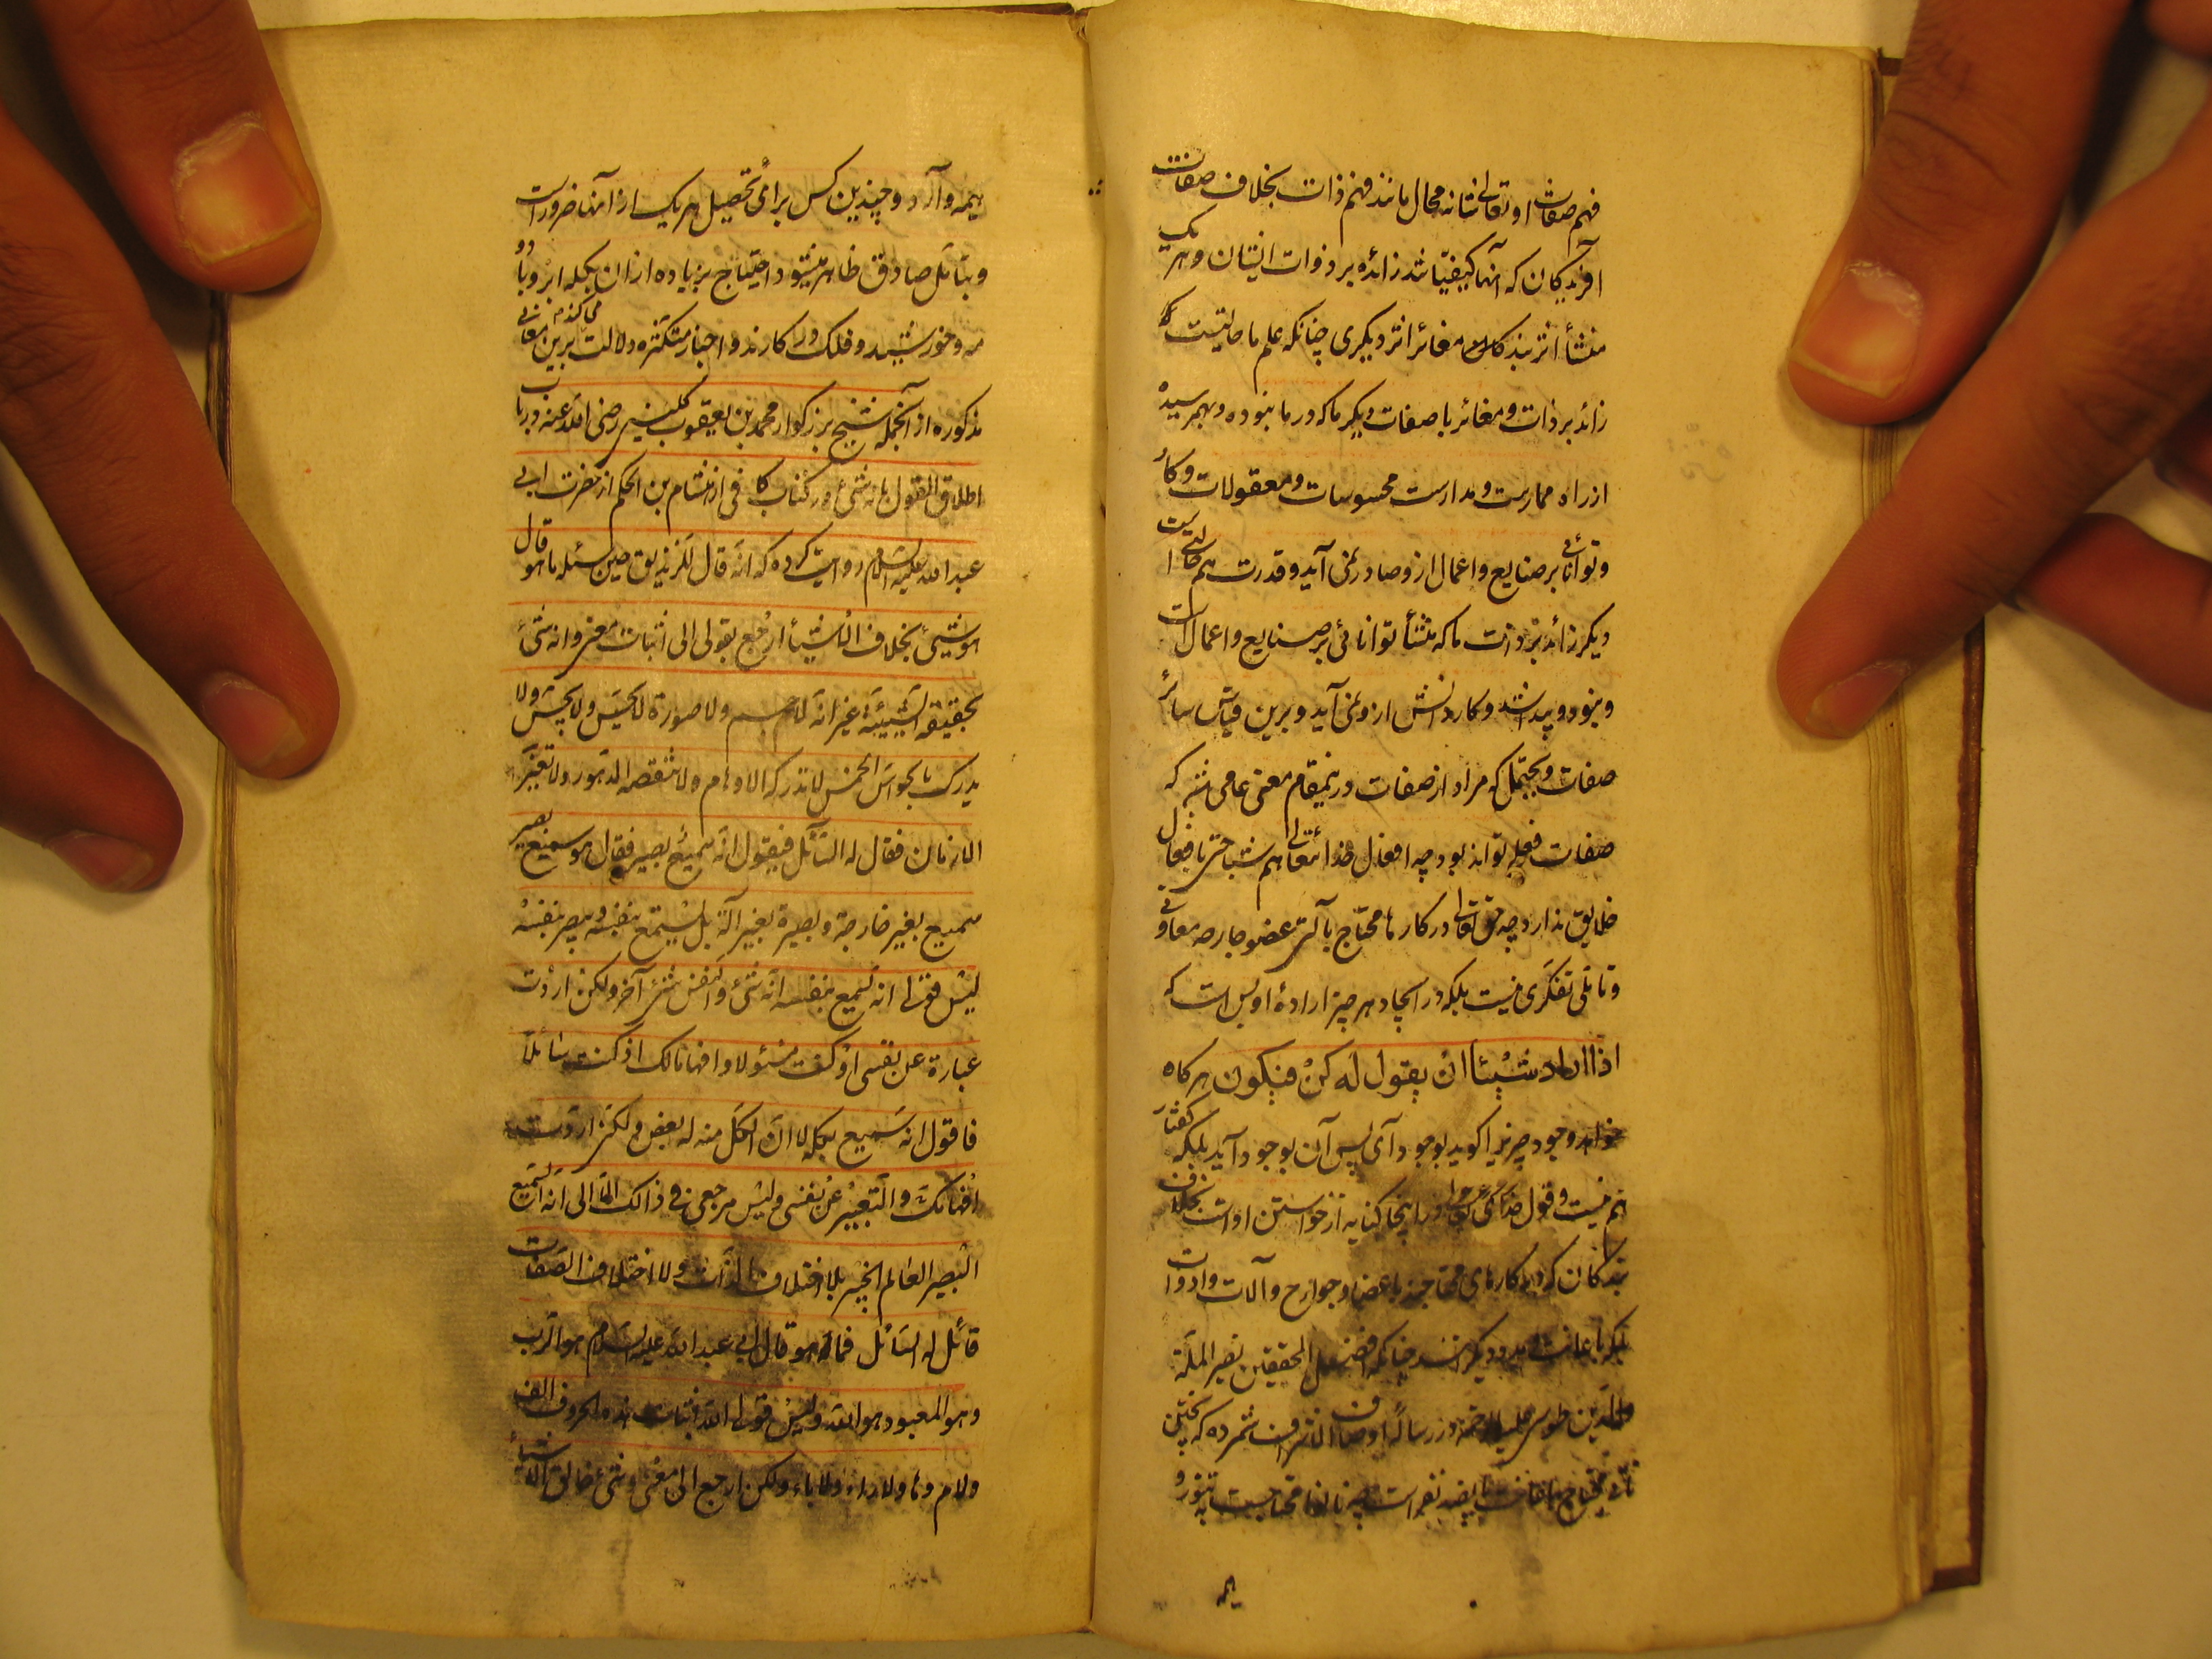 فهم صفات او تعالی شانه محال مانند فهم ذات بخلاف صفات
آفریدگان که آنها کیفیتها شد زائده بر ذوات ایشان و هر یک
منشأ اثر بندگان مغائر اثر دیگری چنانکه علم ما حالتیست که
زائد بر ذات و مغائر با صفات دیگر ما که در ما نبوده و بهم رسیده
از راه ممارست و مدارست محسوسات و معقولات و کار
و توانائی بر صنایع و اعمال ازو صادر نمی آید و قدرت هم حالتیست
دیگر زائد بر ذات ما که منشأ توانائی بر صنایع و اعمال است
و نبود و پیدا شد و کار دانش ازو نمی آید و برین قیاس سائر
صفات و یحتمل که مراد از صفات درینمقام معنی عامی باشد که
صفات فعلیه تواند بود چه افعال خدا تعالی هم شباهتی بافعال
خلایق ندارد چه حق تعالی در کارها محتاج بآلتی عضو جارحه معاونی
و تأملی تفکری نیست بلکه در ایجاد هر چیز ارادهٔ او بس است که
اذا اراد شیئا ان یقول له کن فیکون هرگاه
خواهد وجود چیزیرا گوید بوجود آی پس آن بوجود آید بلکه گفتار
هم نیست و قول خدای تعالی درینجا کنایه از خواستن اوست بخلاف
بندگان که در کارهای محتاجند باعضا و جوارح و آلات و ادوات
بلکه باعانت و مدد دیگر چنانکه افضل المحققین نصیر الملة
والدین طوسی علیه الرحمه در رسالهٔ اوصاف الاشراف شمرده که پختن
نانی محتاج نفر است چه نانوا محتاجست به تنور و
هیمه
هیمه و آرد و چندین کس برای تحصیل هر یک از آنها ضروراست
و بتأمل صادق ظاهر میشود احتیاج بزیاده از ان بلکه ابر و باد و
مه و خورشید و فلک در کارند و اخبار متکثره دلالت برین معانی می کند
مذکوره از آنجمله شیخ بزرگوار محمد بن یعقوب کلینی رضی الله عنه در باب
اطلاق القول بانه شیء در کتاب کافی از هشام بن الحکم از حضرت ابی
عبد الله علیه السلام روایت کرده که انه قال للزندیق حین سئله ما هو قال
هو شیء بخلاف الاشیاء ارجع بقولی الی اثبات معنی و انه شیء
بحقیقة الشیئیة غیر انه لا جسم ولا صورة لا یحس ولا یجس ولا
یدرک بالحواس الخمس لا تدرکه الاوهام ولا تنقصه الدهور ولا تغیره
الازمان فقال له السائل فیقول انه سمیع بصیر فقال هو سمیع بصیر
سمیع بغیر جارحة و بصیر بغیر آلة بل یسمع بنفسه و یبصر بنفسه
لیس قولی انه یسمع بنفسه انه شیء والنفس شیء آخر ولکن اردت
عبارة عن نفسی اذ کنت مسئولا و افهاما لک اذ کنت سائلا
فاقول انه سمیع بکله لا ان الکل منه له بعض ولکن اردت
افهامک والتعبیر عن نفسی ولیس مرجعی فی ذالک الا الی انه السمیع
البصیر العالم الخبیر بلا اختلاف الذات ولا اختلاف الصفات
قائل له السائل فما هو قال ابی عبد الله علیه السلام هو الرب
وهو المعبود هو الله ولیس قولی الله اثبات هذه الحروف الف
ولام وها ولا راء ولا باء ولکن ارجع الی معنی وشیء خالق الاشیاء